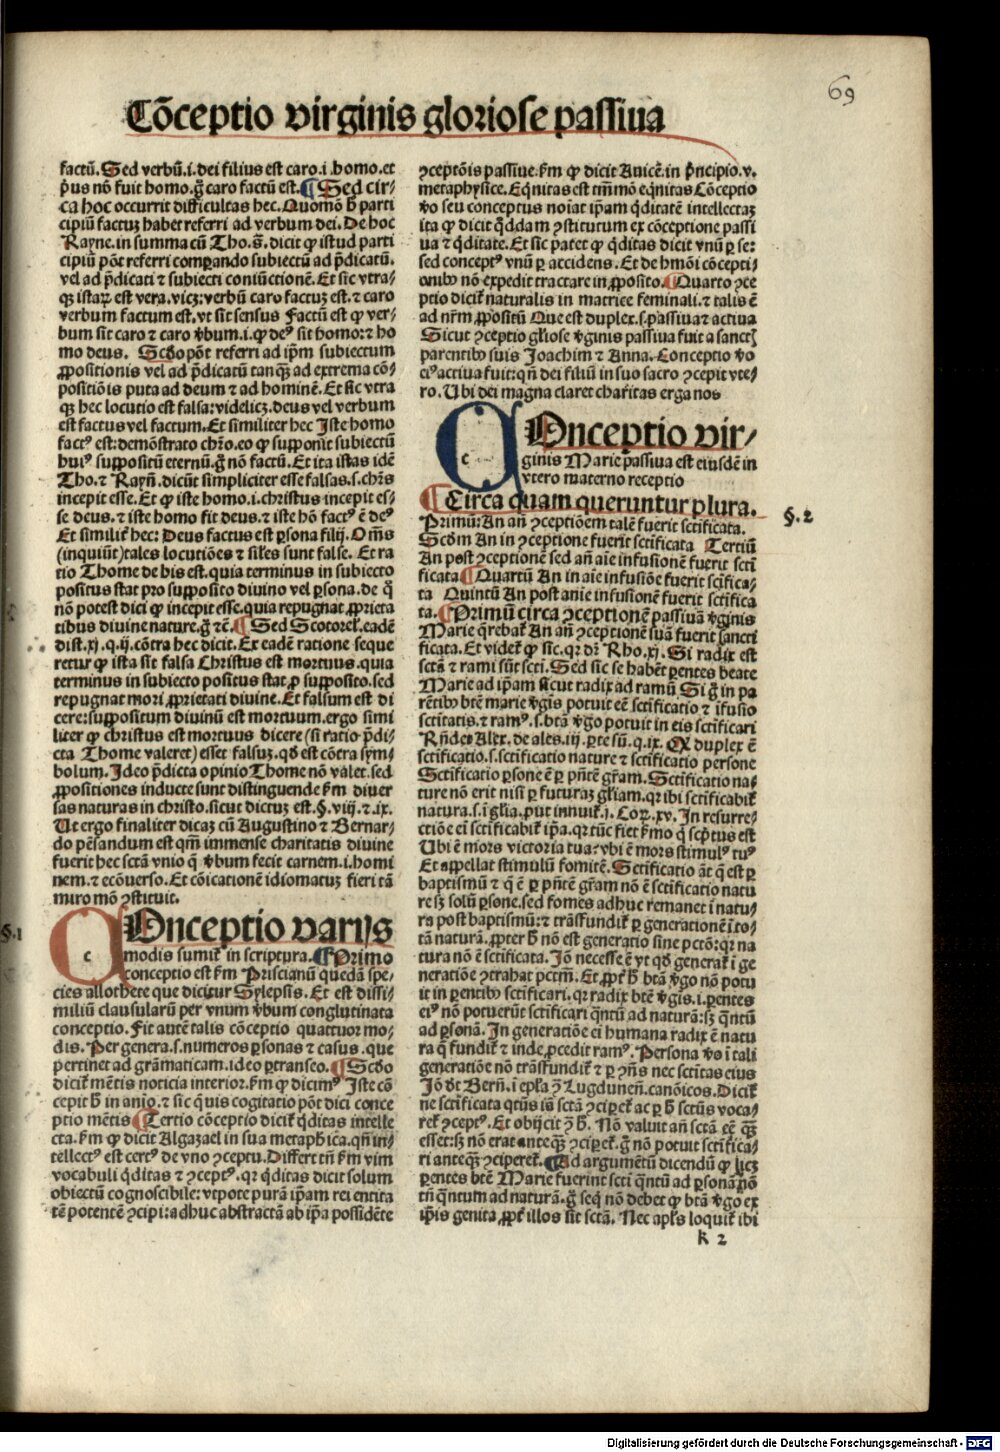 69
Cōceptio virginis gloriose passiua
factū. Sed verbū.i.dei filius est caro.i.homo.et
p̄us nō fuit homo.g̊ caro factū est. ¶ Sed cir⸗
ca hoc occurrit difficultas hec. Quomō h̄ parti
cipiū factuȝ habet referri ad verbum dei. De hoc
Rayne.in summa cū Tho.s̄. dicit ꝙ istud parti
cipiū pōt referri comparando subiectū ad p̄dicatū.
vel ad p̄dicati ⁊ subiecti coniūctionē. Et sic vtra⸗
qȝ istaꝝ est vera.vicȝ:verbū caro factuȝ est.⁊ caro
verbum factum est.vt sit sensus Factū est ꝙ ver⸗
bum sit caro ⁊ caro v̄bum.i.ꝙ deꝰ sit homo:⁊ ho
mo deus. Scd̄o pōt referri ad ip̄m subiectum
ꝓpositionis vel ad p̄dicatū tanqȝ ad extrema cō⸗
positiōis puta ad deum ⁊ ad hominē. Et sic vtra
qȝ hec locutio est falsa:videlicȝ.deus vel verbum
est factus vel factum. Et similiter hec Iste homo
factꝰ est:demōstrato chr̄o.eo ꝙ supponit subiectū
huiꝰ suppositū eternū.g̊ nō factū. Et ita istas idē
Tho.⁊ Rayn̄. dicūt simpliciter esse falsas.s.ch̄rs
incepit esse. Et ꝙ iste homo.i.christus incepit es⸗
se deus.⁊ iste homo fit deus.⁊ iste hō factꝰ ē deꝰ
Et similit̄ hec: Deus factus est ꝑsona filij. Om̄s
(inquiūt)tales locutiōes ⁊ siles sunt false. Et ra
tio Thome de his est.quia terminus in subiecto
positus stat pro supposito diuino vel ꝑsona.de q̊
nō potest dici ꝙ incepit esse.quia repugnat ꝓprieta
tibus diuine nature.g̊ ⁊c̄. ¶ Sed Scotorel. eadē
dist.xj.q.ij.cōtra hec dicit. Ex eadē ratione seque
retur ꝙ ista sit falsa Christus est mortuus.quia
terminus in subiecto positus stat ꝓ supposito.sed
repugnat mori ꝓprietati diuine. Et falsum est di
cere:suppositum diuinū est mortuum.ergo simi
liter ꝙ christus est mortuus dicere (si ratio p̄di⸗
cta Thome valeret) esset falsuȝ.qd̄ est cōtra sym⸗
bolum. Ideo p̄dicta opinio Thome nō valet.sed
ꝓpositiones inducte sunt distinguende ẜm diuer
sas naturas in christo.sicut dictuȝ est.§.viij.⁊.ix.
Ut ergo finaliter dicaȝ cū Augustino ⁊ Bernar⸗
do pēsandum est qm̄ immense charitatis diuine
fuerit hec sctā vnio q̄ v̄bum fecit carnem.i.homi
nem.⁊ ecōuerso. Et cōicationē idiomatuȝ fieri tā
miro mō ꝯstituit.
§.1
c ONceptio varijs
modis sumit̄ in scriptura. ¶ Primo
conceptio est ẜm Priscianū quedā spe⸗
cies allothete que dicitur Sylepsis. Et est dissi⸗
miliū clausularū per vnum v̄bum conglutinata
conceptio. Fit autē talis cōceptio quattuor mo⸗
dis. Per genera.s.numeros ꝑsonas ⁊ casus.que
pertinet ad grāmaticam.ideo ꝑtranseo. ¶ Scd̄o
dicit̄ mētis noticia interior.ẜm ꝙ dicimꝰ Iste cō
cepit h̄ in aīo.⁊ sic q̄uis cogitatio pōt dici conce
ptio mētis ¶ Tertio cōceptio dicit̄ q̄ditas intelle
cta.ẜm ꝙ dicit Algazael in sua metaph̄ica.qn̄ in⸗
tellectꝰ est certꝰ de vno ꝯceptu. Differt tn̄ ẜm vim
vocabuli q̄ditas ⁊ ꝯceptꝰ.qr q̄ditas dicit solum
obiectū cognoscibile:vtpote purā ip̄am rei entita
tē potentē ꝯcipi:adhuc abstractā ab ip̄a possidēte
ꝯceptōis passiue.ẜm ꝙ dicit Auicē.in p̄ncipio.v.
metaphysice. Eq̄nitas est tm̄mō eq̄nitas Cōceptio
v̊o seu conceptus noīat ip̄am q̄ditatē intellectaȝ
ita ꝙ dicit q̄ddam ꝯstitutum ex cōceptione passi
ua ⁊ q̄ditate. Et sic patet ꝙ q̄ditas dicit vnū ꝑ se:
sed conceptꝰ vnū ꝑ accidens. Et de hm̄oi cōcepti⸗
onibꝰ nō expedit tractare in ꝓposito. ¶ Quarto ꝯce
ptio dicit̄ naturalis in matrice feminali.⁊ talis ē
ad nr̄m ꝓpositū Que est duplex.s.passiua ⁊ actiua
Sicut ꝯceptio gl̄iose v̓ginis passiua fuit a sanct̄
parentibꝰ suis Joachim ⁊ Anna. Conceptio v̊o
eiꝰ actiua fuit:qn̄ dei filiū in suo sacro ꝯcepit vte⸗
ro. Ubi dei magna claret charitas erga nos
c ONceptio vir⸗
ginis Marie passiua est eiusdē in
vtero materno receptio
¶ Circa quam queruntur plura.
§.2
Primū: An an̄ ꝯceptiōem talē fuerit sctīficata.
Scd̄m An in ꝯceptione fuerit sctīficata Tertiū
An post ꝯceptionē sed an̄ aīe infusionē fuerit sctī
ficata ¶ Quartū An in aīe infusiōe fuerit scīfica⸗
ta Quintū An post anīe infusionē fuerit sctīfica
ta. ¶ Primū circa ꝯceptionē passiuā v̓ginis
Marie q̄rebat̄ An an̄ ꝯceptionē suā fuerit sancti
ficata. Et videt̄ ꝙ sic.qr dr̄ Rho.xj. Si radix est
sctā ⁊ rami sūt scti. Sed sic se habēt ꝑentes beate
Marie ad ip̄am sicut radix ad ramū Si g̊ in pa
rētibꝰ btē marie v̓gis potuit eē sctīficatio ⁊ ifusio
sctītatis.⁊ ramꝰ.s.btā v̓go potuit in eis sctīficari
Rn̄deo Alex. de ales.iij.ꝑte sū.q.ix. Qȝ duplex ē
sctīficatio.s.sctīficatio nature ⁊ sctīficatio persone
Sctīficatio ꝑsone ē ꝑ pn̄tē gr̄am. Sctīficatio na⸗
ture nō erit nisi ꝑ futuraȝ gl̄iam.qr ibi sctīficabit̄
natura.s.ī gl̄ia.put innuit̄.j. Coꝝ.xv. In resurre⸗
ctiōe ei sctīficabit̄ ip̄a.qr tūc fiet ẜmo q̄ scptus est
Ubi ē mors victoria tua:vbi ē mors stimulꝰ tuꝰ
Et appellat stimulū fomitē. Sctīficatio āt q̄ est ꝑ
baptismū ⁊ q̄ ē ꝑ pn̄tē gr̄am nō ē sctīficatio natu
re sȝ solū ꝑsone.sed fomes adhuc remanet ī natu⸗
ra post baptismū:⁊ trāsfundit̄ ꝑ generationē ī to⸗
tā naturā.ꝓpter h̄ nō est generatio sine pctō:qr na
tura nō ē sctīficata. Iō necesse ē vt qd̄ generat̄ ī ge
neratiōe ꝯtrahat pctm̄. Et ꝓpt̄ h̄ btā v̓go nō potu
it in ꝑentibꝰ sctīficari.qr radix btē v̓gis.i.ꝑentes
eiꝰ nō potuerūt sctīficari q̄ntū ad naturā:sȝ q̄ntū
ad ꝑsonā. In generatiōe ei humana radix ē natu
ra q̄ fundit̄ ⁊ inde ꝓcedit ramꝰ. Persona v̊o ī tali
generatiōe nō trāsfundit̄ ⁊ ꝑ ꝯn̄s nec sctītas eius
Iō d̄t Bern̄.ī epl̄a q̄ Lugdunen̄.canōicos. Dicit̄
ne sctīficata q̄tūs iā sctā ꝯciperet̄ ac ꝑ h̄ sctūs voca⸗
ret̄ ꝯceptꝰ. Et obijcit ꝯ h̄. Nō valuit an̄ sctā eē q̄ȝ
esset:sȝ nō erat anteqȝ ꝯciperet̄.g̊ nō potuit sctīfica⸗
ri anteqȝ ꝯciperet̄. ¶ Ad argumētū dicendū ꝙ licȝ
ꝑentes btē Marie fuerint scti q̄ntū ad ꝑsonā nō
tn̄ q̄ntum ad naturā.g̊ seq̄ nō debet ꝙ btā v̓go ex
ip̄is genita ꝓpt̄ illos sit sctā. Nec apl̄s loquit̄ ibi
k 2
Digitalisierung gefördert durch die Deutsche Forschungsgemeinschaft - DFG